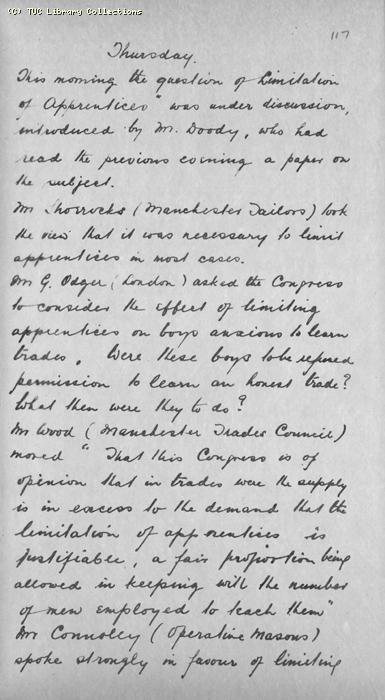 (C) TUC Library Collections
117
Thursday.
This morning the question of Limitation
of Apprentices" was under discussion,
introduced by Mr. Doody, who had
read the previous evening a paper on
the subject.
Mr Shorrocks (Manchester Tailors) took
the view that it was necessary to limit
apprentices in most cases.
Mr G. Odger (London) asked the Congress
to consider the effect of limiting
apprentices on boys anxious to learn
trades. Were these boys to be refused
permission to learn an honest trade?
What then were they to do?
Mr Wood (Manchester Trades Council)
moved "That this Congress is of
opinion that in trades were the supply
is in excess to the demand that the
limitation of apprentices is
justifiable, a fair proportion being
allowed in keeping with the number
of men employed to teach them"
Mr Connolly (Operative Masons)
spoke strongly in favour of limiting